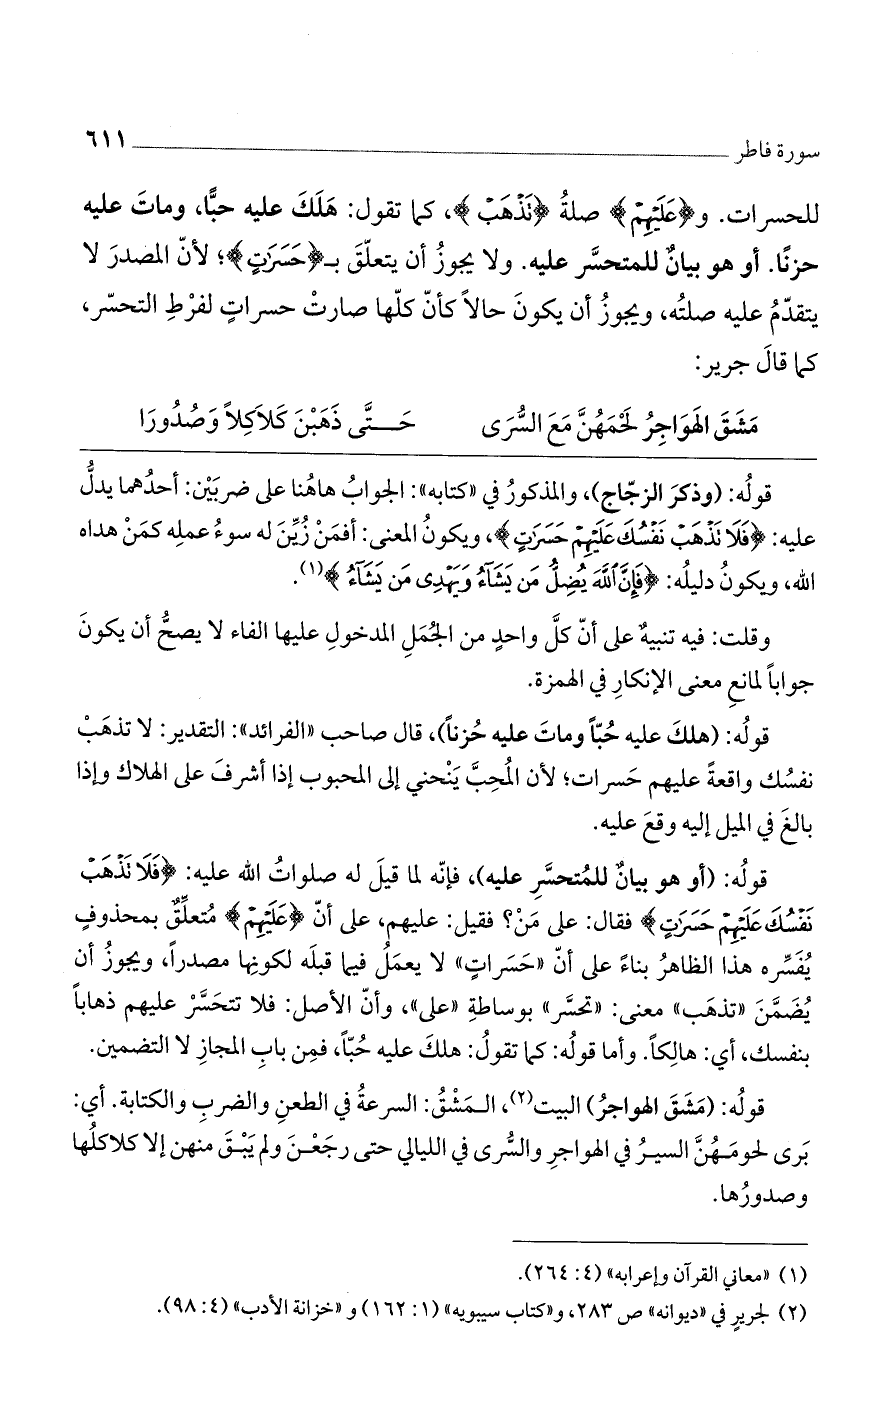 سورة فاطر ٦١١
للحسرات. و﴿عَلَيْهِمْ﴾ صلةُ ﴿نَذْهَبْ﴾، كما تقول: هَلَكَ عليه حبًّا، وماتَ عليه
حزنًا. أو هو بيانٌ للمتحسَّر عليه. ولا يجوزُ أن يتعلّقَ بـ﴿حَسَرَاتٍ﴾؛ لأنّ المصدرَ لا
يتقدّمُ عليه صلتُه، ويجوزُ أن يكونَ حالاً كأنّ كلّها صارتْ حسراتٍ لفرْطِ التحسّر،
كما قالَ جرير:
مَشَقَ الهَوَاجِرُ لَحْمَهُنَّ مَعَ السُّرَى حَـــتَّى ذَهَبْنَ كَلاَكِلاً وَصُدُورَا
قولُه: (وذكرَ الزجّاج)، والمذكورُ في «كتابه»: الجوابُ هاهُنا على ضربَيْن: أحدُهما يدلُّ
عليه: ﴿فَلَا نَذْهَبْ نَفْسُكَ عَلَيْهِمْ حَسَرَاتٍ﴾، ويكونُ المعنى: أفمَنْ زُيِّنَ له سوءُ عملِه كمَنْ هداه
الله، ويكونُ دليلُه: ﴿فَإِنَّ ٱللَّهَ يُضِلُّ مَن يَشَآءُ وَيَهْدِى مَن يَشَآءُ﴾(١).
وقلت: فيه تنبيهٌ على أنّ كلَّ واحدٍ من الجُمَلِ المدخولِ عليها الفاء لا يصحُّ أن يكونَ
جواباً لمانعِ معنى الإنكارِ في الهمزة.
قولُه: (هلكَ عليه حُبّاً وماتَ عليه حُزناً)، قال صاحب «الفرائد»: التقدير: لا تذهَبْ
نفسُك واقعةً عليهم حَسرات؛ لأن المُحِبَّ يَنْحني إلى المحبوب إذا أشرفَ على الهلاك وإذا
بالغَ في الميل إليه وقعَ عليه.
قولُه: (أو هو بيانٌ للمُتحسَّرِ عليه)، فإنّه لما قيلَ له صلواتُ الله عليه: ﴿فَلَا نَذْهَبْ
نَفْسُكَ عَلَيْهِمْ حَسَرَاتٍ﴾ فقال: على مَنْ؟ فقيل: عليهم، على أنّ ﴿عَلَيْهِمْ﴾ مُتعلِّقٌ بمحذوفٍ
يُفَسِّره هذا الظاهرُ بناءً على أنّ «حَسَراتٍ» لا يعمَلُ فيما قبلَه لكونِها مصدراً، ويجوزُ أن
يُضَمَّنَ «تذهَب» معنى: «تحسَّر» بوساطةِ «على»، وأنّ الأصل: فلا تتحَسَّرْ عليهم ذهاباً
بنفسك، أي: هالِكاً. وأما قولُه: كما تقولُ: هلكَ عليه حُبّاً، فمِن بابِ المجازِ لا التضمين.
قولُه: (مَشَقَ الهواجرُ) البيت(٢)، الـمَشْقُ: السرعةُ في الطعنِ والضربِ والكتابة. أي:
بَرى لحومَـهُنَّ السيـرُ في الهواجرِ والسُّرى في الليالي حتى رجَعْـنَ ولم يَبْـقَ منهن إلا كلاكلُها
وصدورُها.
(١) «معاني القرآن وإعرابه» (٤: ٢٦٤).
(٢) لجريرٍ في «ديوانه» ص ٢٨٣، و«كتاب سيبويه» (١: ١٦٢) و «خزانة الأدب» (٤: ٩٨).